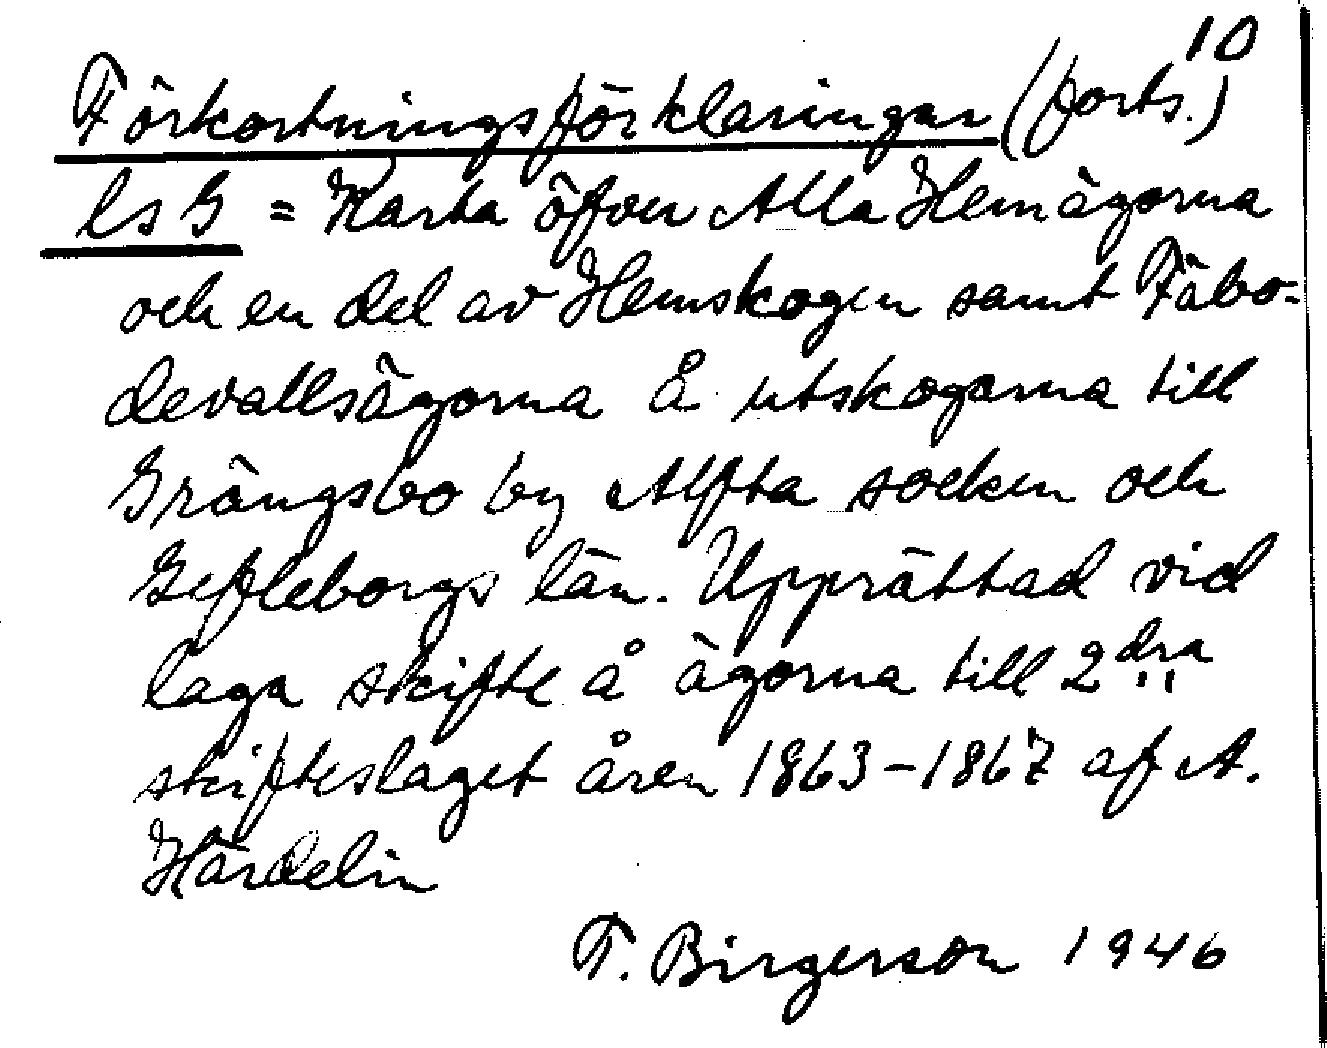 10
Förkortningsförklaringar (forts.)
ls G = Karta öfver Alla Hemägorna
och en del av Hemskogen samt Fäbo-
devallsägorna å utskogarna till
Grängsbo by Alfta socken och
Gefleborgs län. Upprättad vid
laga skifte å ägorna till 2dra
skifteslaget åren 1863-1867 af A.
Härdelin
F. Birgerson 1946